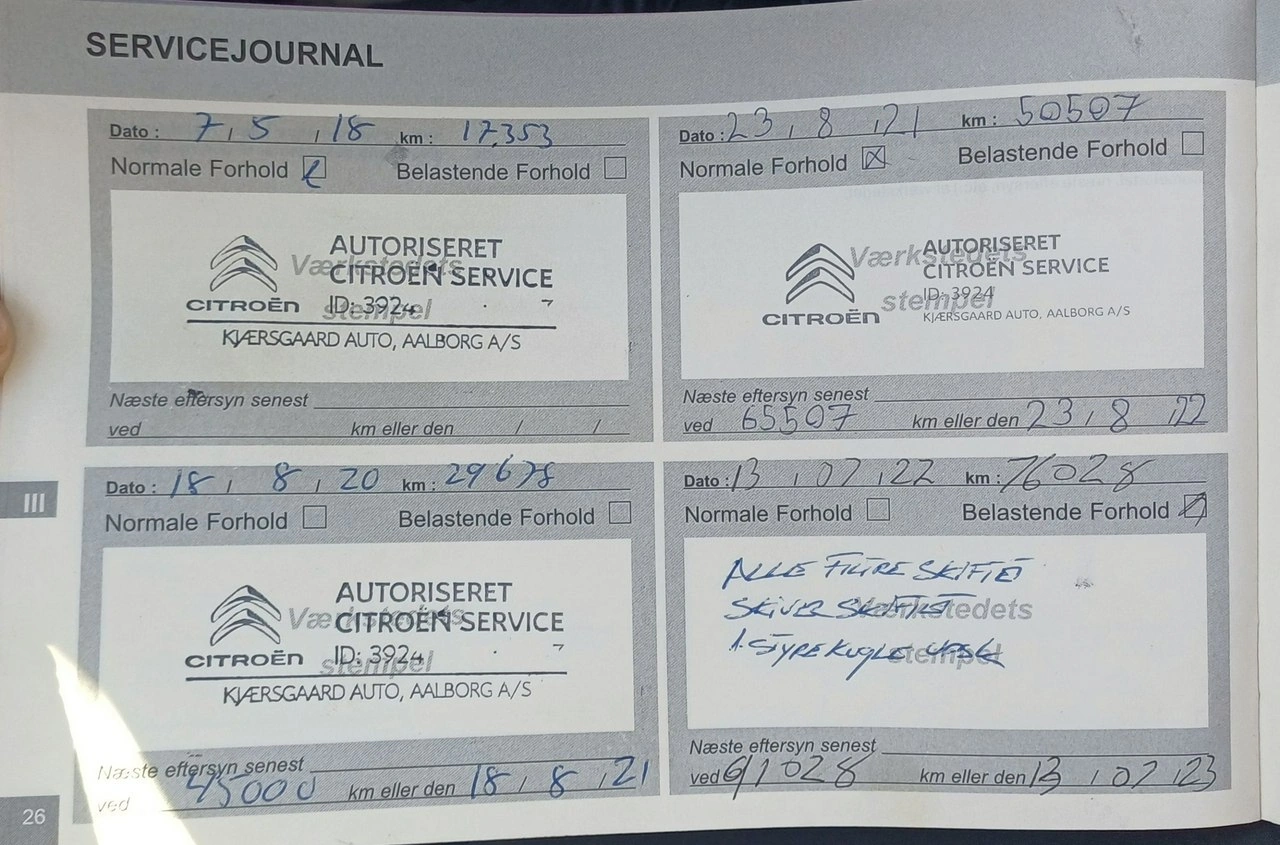 SERVICEJOURNAL
Dato : 7 / 5 / 18 km : 17.353
Normale Forhold Belastende Forhold
Værkstedets
stempel
AUTORISERET
CITROËN SERVICE
CITROËN ID: 3924
KJÆRSGAARD AUTO, AALBORG A/S
Næste eftersyn senest
ved km eller den / /
Dato : 23 / 8 / 21 km : 50507
Normale Forhold Belastende Forhold
Værkstedets
stempel
AUTORISERET
CITROËN SERVICE
ID: 3924
CITROËN KJÆRSGAARD AUTO, AALBORG A/S
Næste eftersyn senest
ved 65507 km eller den 23 / 8 / 22
III
Dato : 18 / 8 / 20 km : 29678
Normale Forhold Belastende Forhold
Værkstedets
stempel
AUTORISERET
CITROËN SERVICE
CITROËN ID: 3924
KJÆRSGAARD AUTO, AALBORG A/S
Næste eftersyn senest
ved 45000 km eller den 18 / 8 / 21
Dato : 13 / 07 / 22 km : 76028
Normale Forhold Belastende Forhold
Værkstedets
stempel
ALLE FILTRE SKIFTET
SKIVER SKIFTET
1. STYREKUGLE
Næste eftersyn senest
ved 91028 km eller den 13 / 07 / 23
26